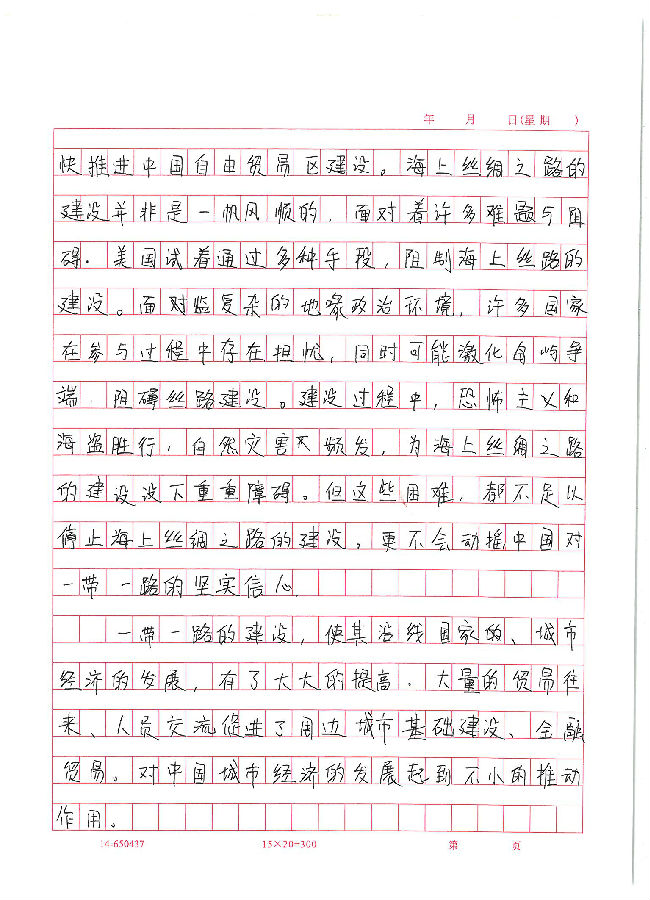 年 月 日(星期 )
快推进中国自由贸易区建设。海上丝绸之路的
建设并非是一帆风顺的,面对着许多难题与阻
碍.美国试着通过多种手段,阻制海上丝路的
建设。面对临复杂的地缘政治环境,许多国家
在参与过程中存在担忧,同时可能激化岛屿争
端,阻碍丝路建设。建设过程中,恐怖主义和
海盗胜行,自然灾害频发,为海上丝绸之路
的建设设下重重障碍。但这些困难,都不足以
停止海上丝绸之路的建设,更不会动摇中国对
一带一路的坚实信心
一带一路的建设,使其沿线国家的、城市
经济的发展,有了大大的提高.大量的贸易往
来、人员交流促进了周边城市基础建设、金融
贸易。对中国城市经济的发展起到不小的推动
作用。
14-650437 15×20=300 第 页